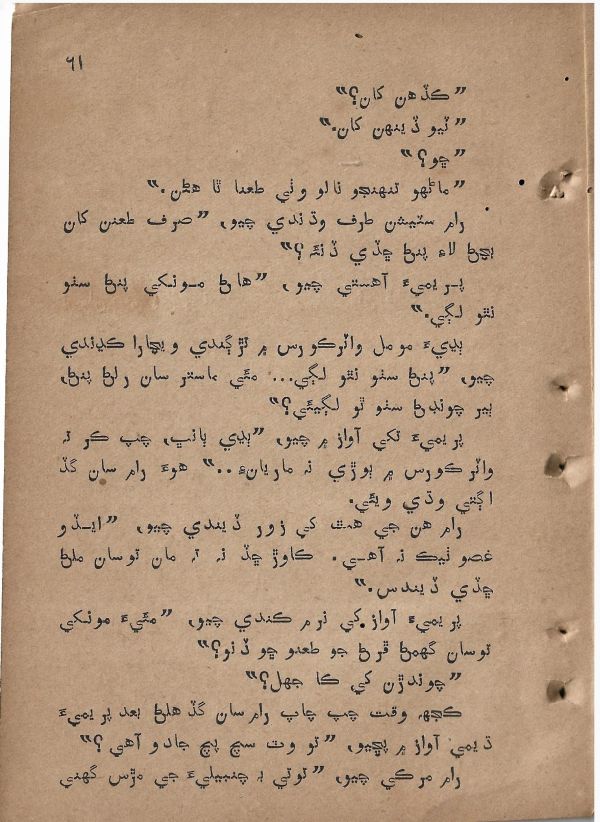 ٦١
”ڪڏهن کان؟“
”ٽيو ڏينهن کان.“
”ڇو؟“
”ماڻهو تنهنجو نالو وٺي طعنا ٿا هڻن.“
رام سٽيشن طرف وڌندي چيو، ”صرف طعنن کان
بچڻ لاءِ پنڻ ڇڏي ڏنئہ؟“
پريميءَ آهستي چيو، ”هاڻ مونکي پنڻ سٺو
نٿو لڳي.“
ٻڍيءَ مومل واٽرڪورس ۾ ترڳندي ويچارا ڪڍندي
چيو، ”پنڻ سٺو نٿو لڳي... مئي ماستر سان رلڻ پنڻ،
ٻير چونڊڻ سٺو ٿو لڳيئي؟“
پريميءَ تکي آواز ۾ چيو، ”ٻڍي ٻانڀ، چپ ڪر نہ
واٽرڪورس ۾ ٻوڙي نہ ماريانءِ..“ هوءَ رام سان گڏ
اڳتي وڌي ويئي.
رام هن جي هٿ کي زور ڏيندي چيو، ”ايڏو
غصو ٺيڪ نہ آهي. ڪاوڙ ڇڏ نہ تہ مان توسان ملڻ
ڇڏي ڏيندس.“
پريميءَ آواز کي نرم ڪندي چيو، ”مئيءَ مونکي
توسان گهمڻ ڦرڻ جو طعنو ڇو ڏنو؟“
”چوندڙن کي ڪا جهل؟“
ڪجهہ وقت چپ چاپ رام سان گڏ هلڻ بعد پريميءَ
ڌيمي آواز ۾ پڇيو، ”تو وٽ سچ پچ جادو آهي؟“
رام مرڪي چيو، ”توتي بہ چنبيليءَ جي مڙس گهڻي